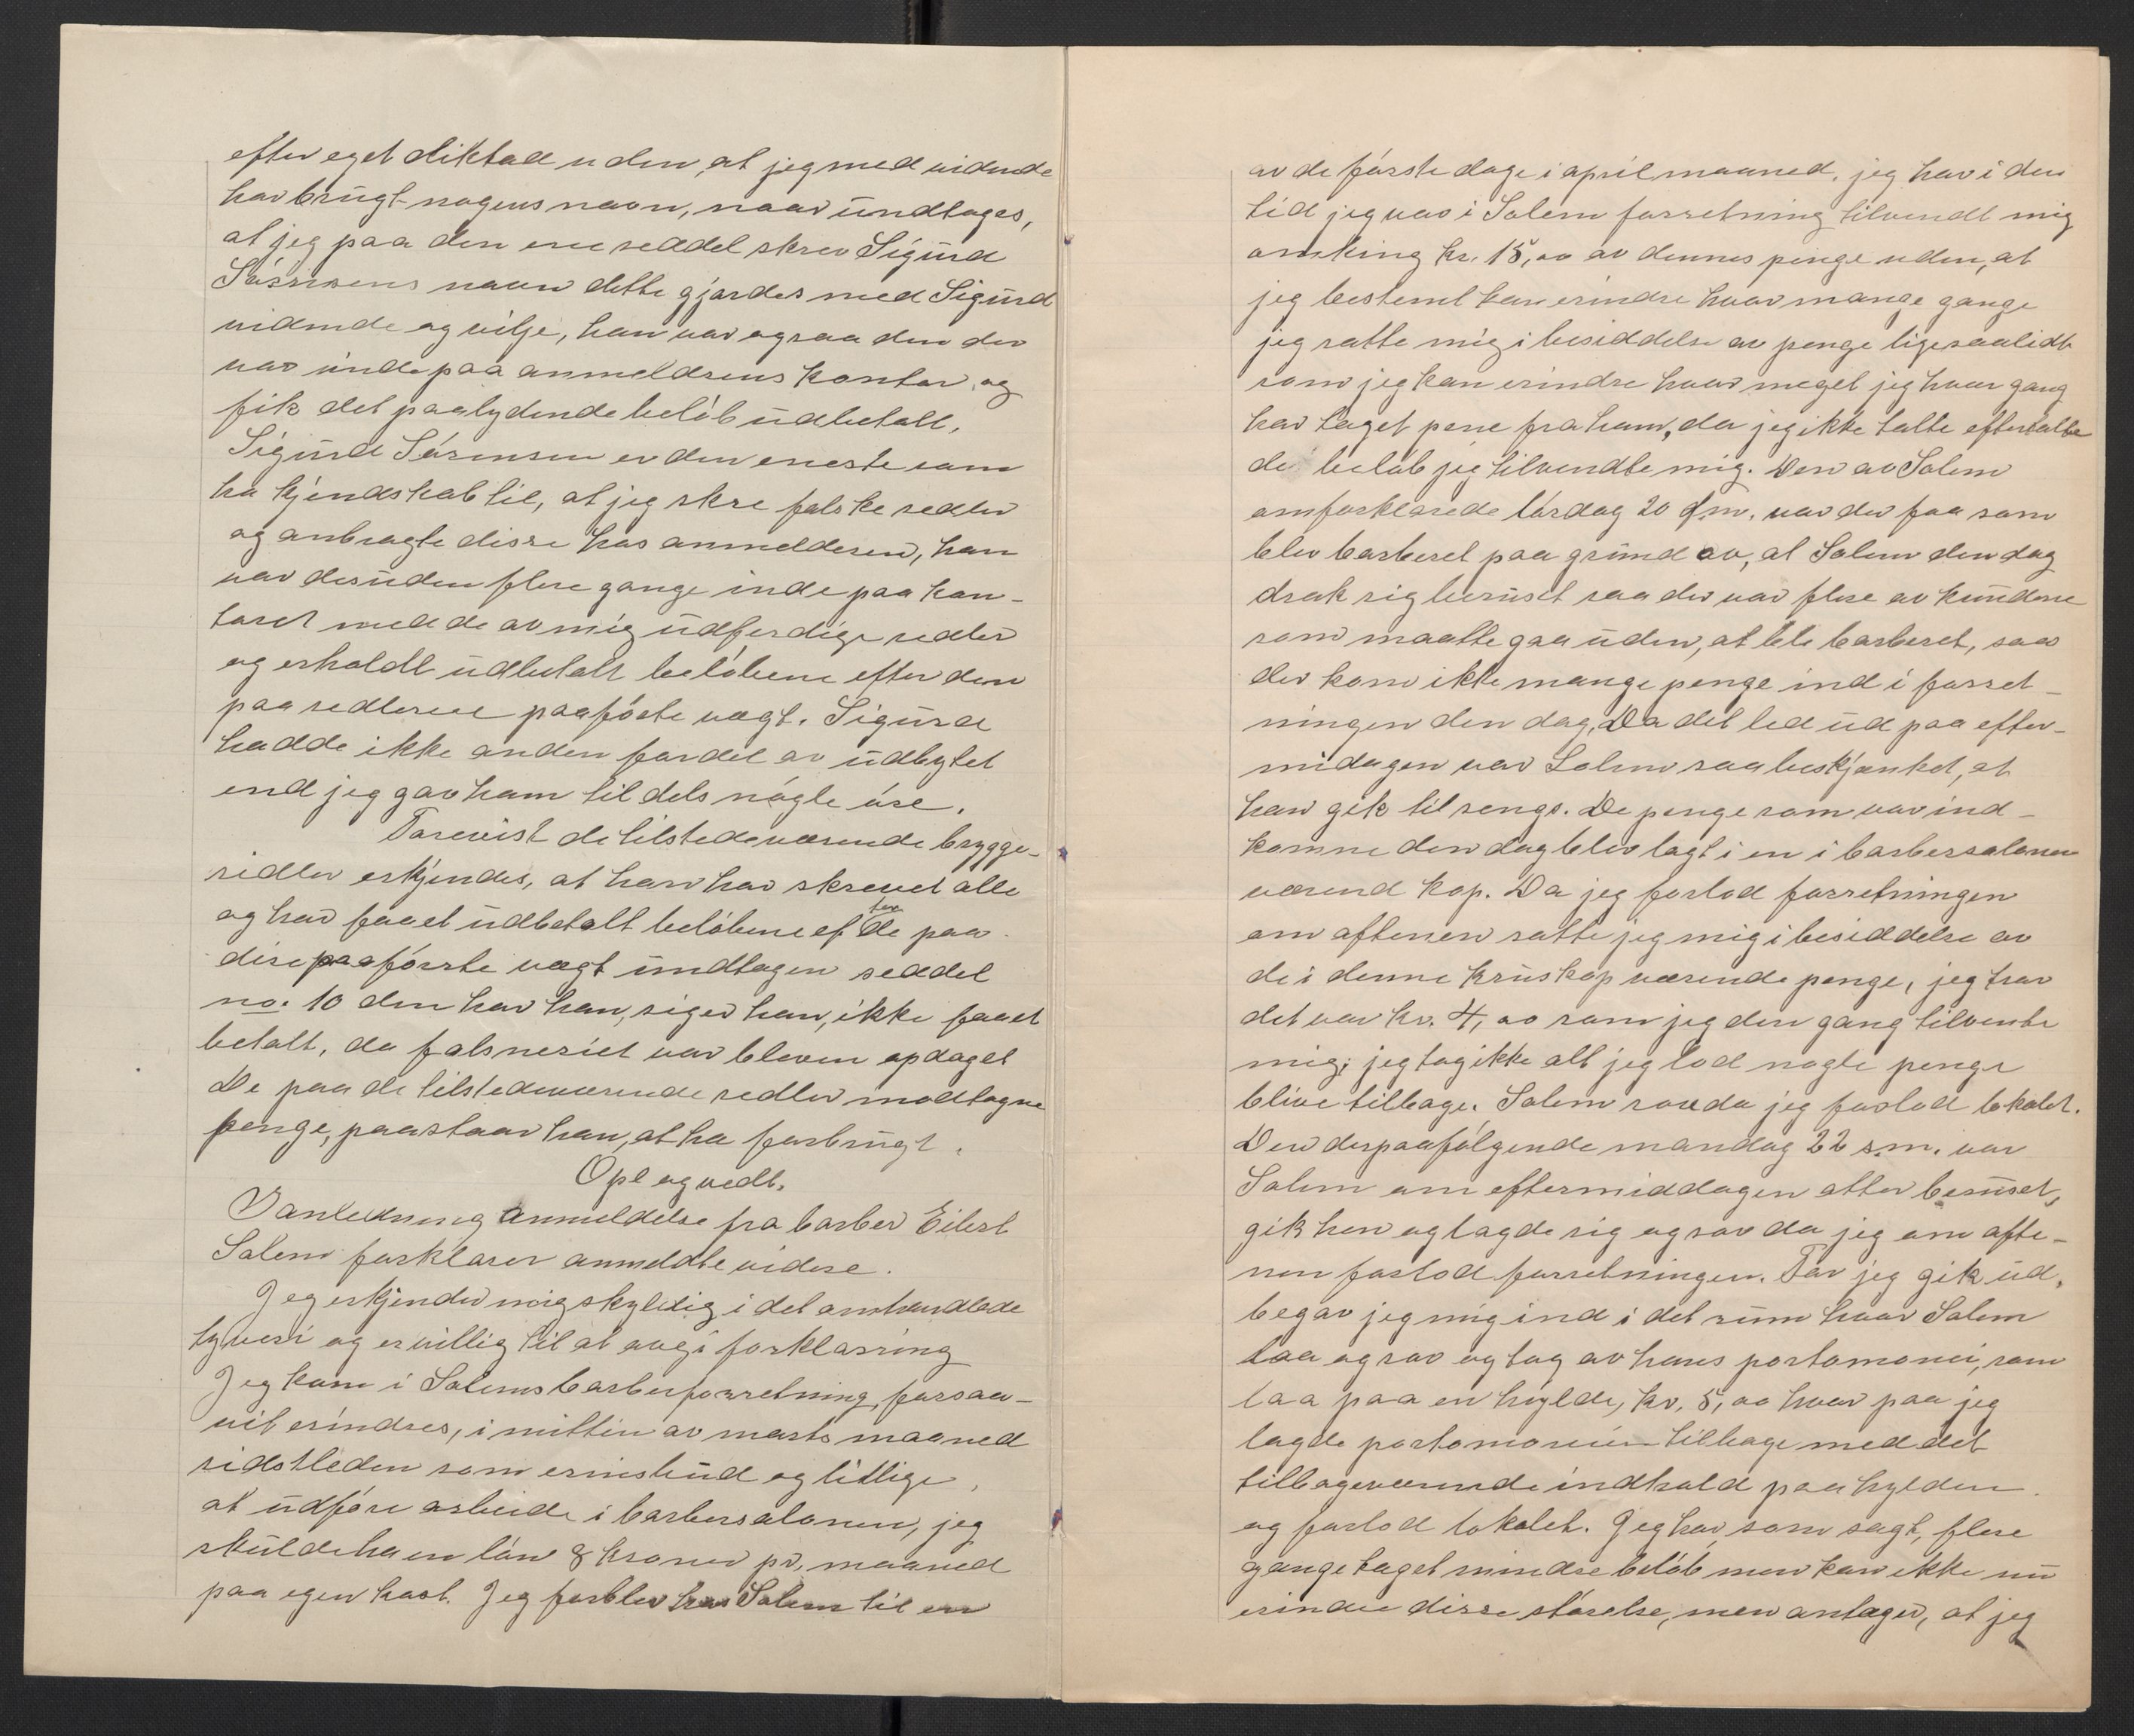 efter eget diktad uden, at jeg med vidende
har brugt nogens navn, naar undtages,
at jeg paa den ene seddel skrev Sigurd
Sörensens navn dette gjordes med Sigurd
vidende og vilje, han var ogsaa den der
var inde paa anmelderens kontor og
fik det paalydende belöb udbetalt,
Sigurd Sörensen er den eneste som
ha kjendskab til, at jeg skre falske sedler
og anbragte disse hos anmelderen, han
var desuden flere gange inde paa kon-
toret med de av mig udferdige sedler
og erholdt udbetalt belöbene efter den
paa sedlerne paaförte vægt. Sigurd
hadde ikke anden fordel av udbytet
end jeg gav ham til dels nogle öre.
Forevist de tilstedeværende brygge-
sedler erkjendes, at han har skrevet alle
og har faaet udbetalt belöbene efter de paa
disse paaförste vægt undtagen seddel
no. 10 den har han, siger han, ikke faaet
betalt, da falsneriet var bleven opdaget
De paa de tilstedeværende sedler modtagne
penge, paastaar han, at ha forbrugt.
Opl og vedt.
I anledning anmeldelse fra barber Eilert
Salem forklarer anmeldte videre.
Jeg erkjender mig skyldig i det omhandlede
tyveri og er villig til at avgi forklaring
Jeg kom i Salems barberforretning, forsaa-
vit erindres, i mitten av marts maaned
sidstleden som erindsbud og tillige
at udföre arbeide i barbersalonen, jeg
skulde ha en lön 8 kroner pr. maaned
paa egen kost. Jeg forblev hos Salem til en
av de förste dage i april maaned, jeg har i den
tid jeg var i Salem forretning tilvendt mig
omking kr. 15,oo av dennes penge uden, at
jeg bestemt kan erindre hvor mange gange
jeg satte mig i besiddelse av penge ligesaalidt
som jeg kan erindre hvor meget jeg hver gang
har taget pene fra ham, da jeg ikke talte eftertalte
de belöb jeg tilvendte mig. Den av Salem
omforklarede lördag 20 f.m. var der faa som
blev barberet paa grund av, at Salem den dag
drak sig beruset saa der var flere av kunderne
som maatte gaa uden, at bli barberet, saa
der kom ikke mange penge ind i forret-
ningen den dag, Da det led ud paa efter-
midagen var Salem saa beskjænket, at
han gik til sengs. De penge som var ind-
komne den dag blev lagt i en i barbersalonen
værend kop. Da jeg forlod forretningen
om aftenen satte jeg mig i besiddelse av
de i denne kruskop værende penge, jeg tror
det var kr. 4,oo som jeg den gang tilvente
mig; jeg tog ikke alt jeg lod nogle penge
blive tilbage. Salem sov da jeg forlod lokalet.
Den derpaafölgende mandag 22 s.m. var
Salem om eftermiddagen atter beruset,
gik hen og lagde sig og sov da jeg om afte-
nen forlod forretningen. För jeg gik ud,
begav jeg mig ind i det rum hvor Salem
laa og sov og tog av hans portomonei, som
laa paa en hylde, kr. 5,oo hvor paa jeg
lagde portomoneien tilbage med det
tilbageværende indhold paa hylden
og forlod lokalet. Jeg har, som sagt, flere
gange taget mindre belöb men kan ikke nu
erindre disse störelse, men antager, at jeg